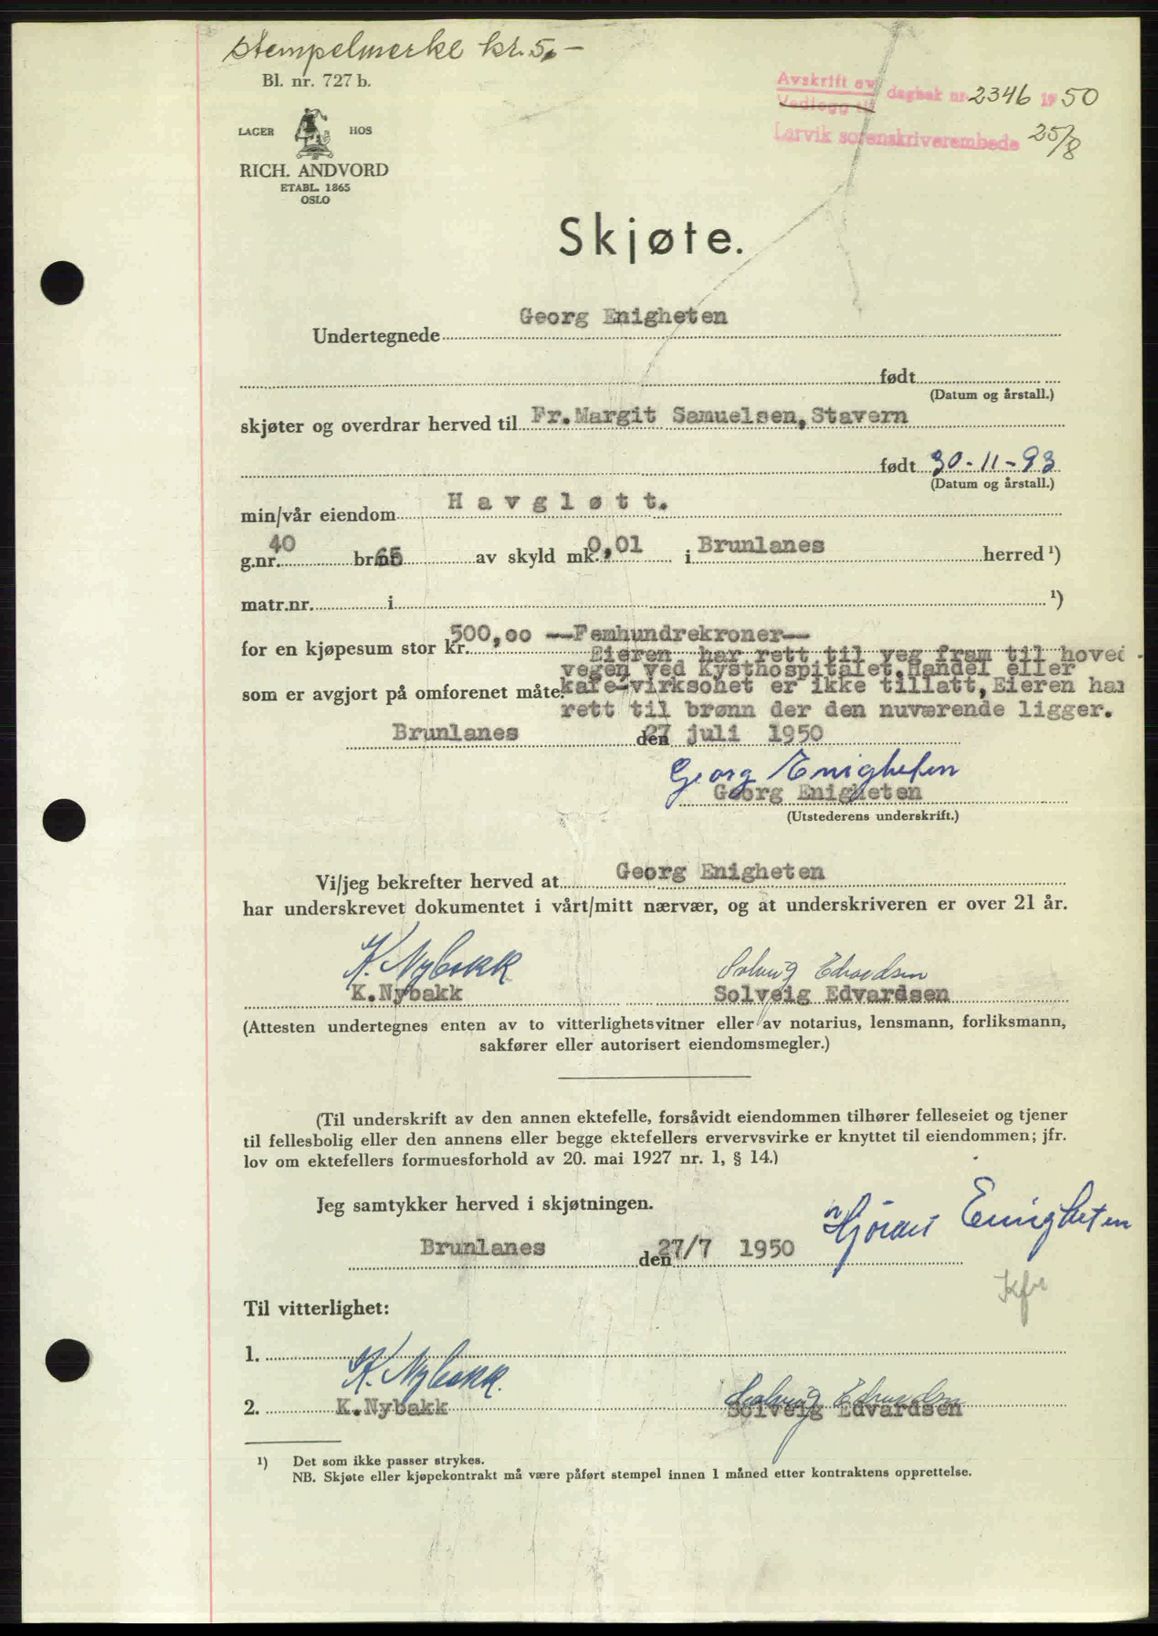 Stempelmerke kr. 5,-
Bl. nr. 727 b.
LAGER HOS
RICH. ANDVORD
ETABL. 1865
OSLO
Avskrift av
Vedlegg til dagbok nr. 2346 1950
Larvik sorenskriverembede 25/8
Skjøte.
Undertegnede Georg Enigheten
født
(Datum og årstall.)
skjøter og overdrar herved til Fr. Margit Samuelsen, Stavern
født 30-11-93
(Datum og årstall.)
min/vår eiendom Havgløtt.
g.nr. 40 br.nr. 65 av skyld mk. 0,01 i Brunlanes herred ¹)
matr.nr. i ¹)
for en kjøpesum stor kr. 500,00 --Femhundrekroner--
Eieren har rett til veg fram til hoved-
vegen ved Kysthospitalet. Handel eller
som er avgjort på omforenet måte. kafe-virksohet er ikke tillatt, Eieren har
rett til brønn der den nuværende ligger.
Brunlanes den 27 juli 1950
Georg Enigheten
Georg Enigheten
(Utstederens underskrift.)
Vi/jeg bekrefter herved at Georg Enigheten
har underskrevet dokumentet i vårt/mitt nærvær, og at underskriveren er over 21 år.
K. Nybakk Solveig Edvardsen
K.Nybakk Solveig Edvardsen
(Attesten undertegnes enten av to vitterlighetsvitner eller av notarius, lensmann, forliksmann,
sakfører eller autorisert eiendomsmegler.)
(Til underskrift av den annen ektefelle, forsåvidt eiendommen tilhører felleseiet og tjener
til fellesbolig eller den annens eller begge ektefellers ervervsvirke er knyttet til eiendommen; jfr.
lov om ektefellers formuesforhold av 20. mai 1927 nr. 1, § 14.)
Jeg samtykker herved i skjøtningen.
Enigheten
Brunlanes den 27/7 1950
Til vitterlighet:
1.
K. Nybakk. Solveig Edvardsen
2. K.Nybakk Solveig Edvardsen
¹) Det som ikke passer strykes.
NB. Skjøte eller kjøpekontrakt må være påført stempel innen 1 måned etter kontraktens opprettelse.